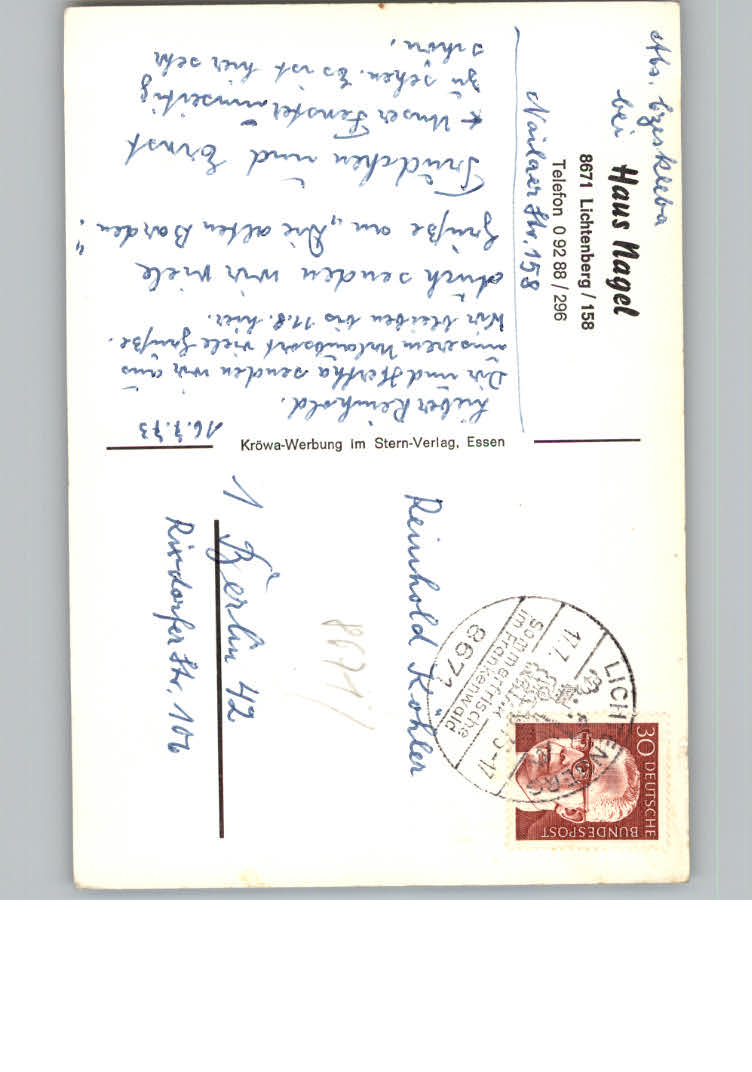 Abs. Czeskleba
bei Haus Nagel
8671 Lichtenberg / 158
Telefon 0 92 88 / 296
Nailaer Str. 158
16.7.73
Lieber Reinhold.
Dir und Hertha senden wir aus
unserem Urlaubsort viele Grüße.
Wir bleiben bis 11.8. hier.
Auch senden wir viele
Grüße an „Die alten Barden“.
Trudchen und Ernst
* Unser Fenster
zu sehen. Es ist hier sehr
schön.
Kröwa-Werbung im Stern-Verlag, Essen
Reinhold Köhler
1 Berlin 42
Rixdorfer Str. 106
8671
LICHTENBERG
17.7.
-17
Sommerfrische
im Frankenwald
8671
30 DEUTSCHE
BUNDESPOST